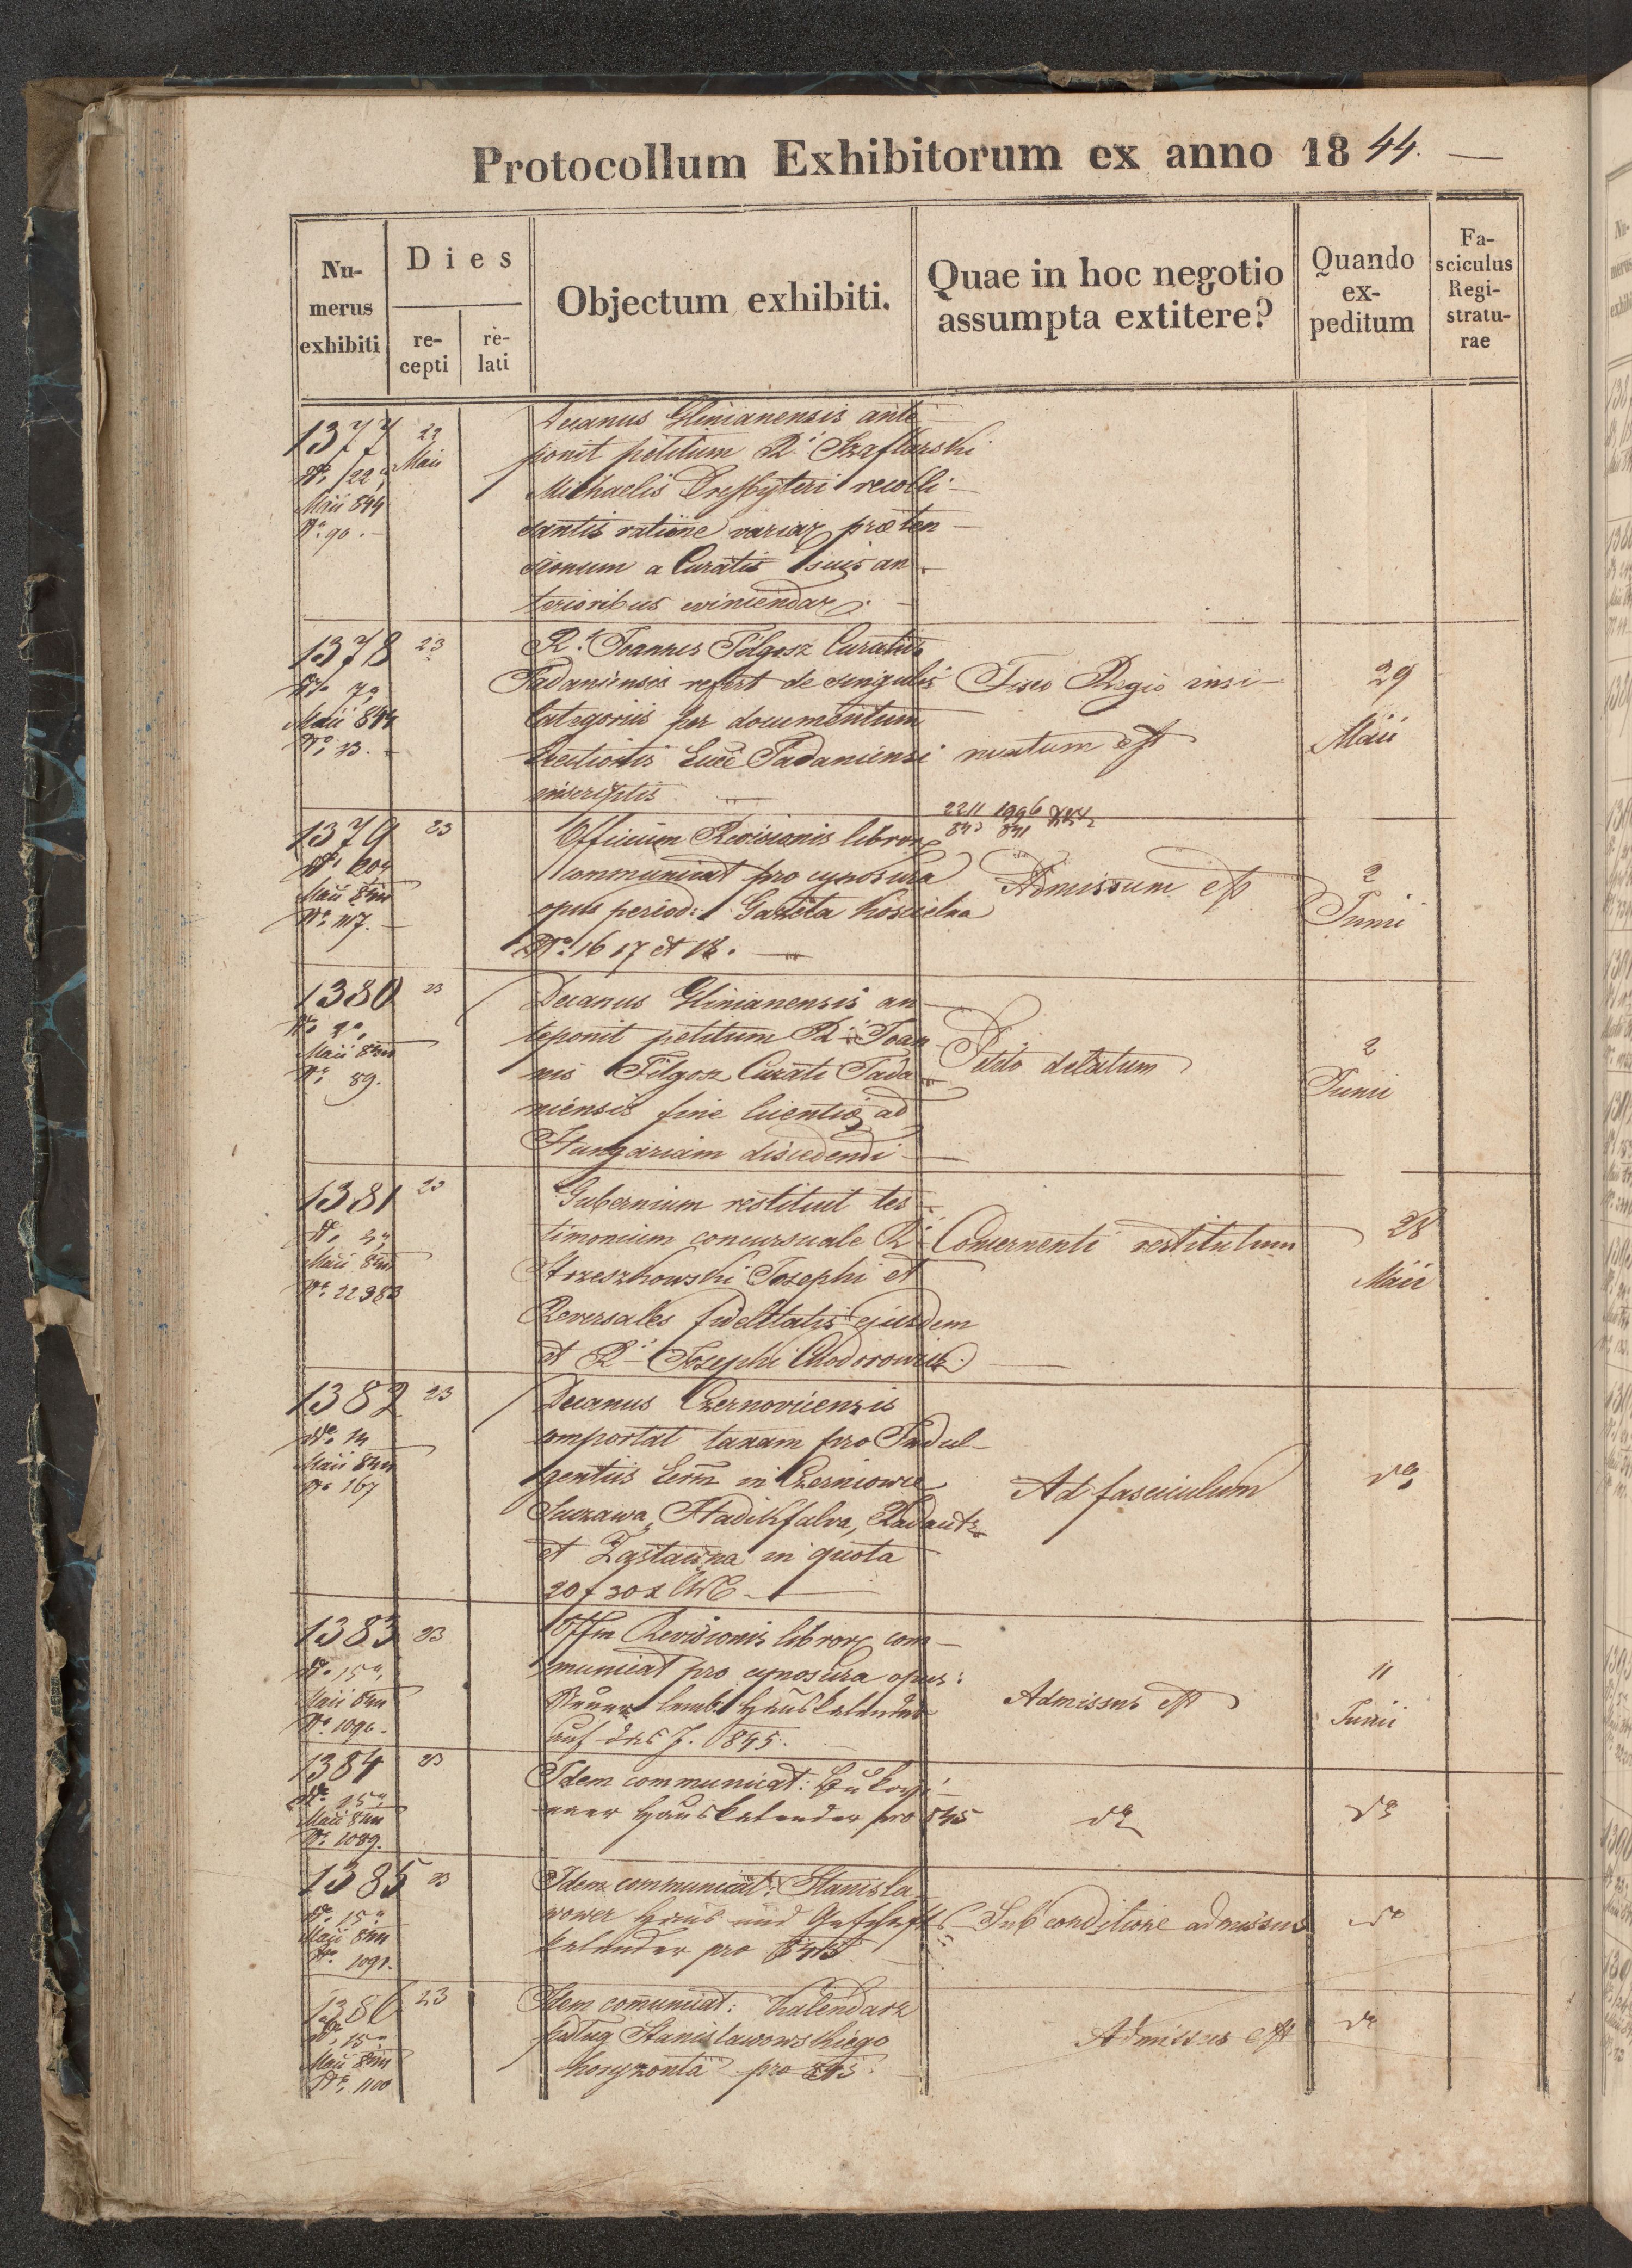 Protocollum Exhibitorum ex anno 1844.
Numerus exhibiti
Dies
recepti
relati
Objectum exhibiti.
Quae in hoc negotio assumpta extitere?
Quando expeditum
Fasciculus Registraturae
1377
22
Maii
Maii 844
No. 90.
Decanus Glinianensis ante
ponit petitum R. Szaflarski
Michaelis Presbyteri recolli
santis ratione variar praeten
sionum a Curatis suis an
terioribus evincendar.
1378
23
Maii 844
No. 13.
R. Joannes Filgosz Curatus
Tadaniensis refert de singulis
Categoriis per documentum
Erectionis Eccl Tadaniensi
inscriptis
Fisco Regio insi
nuatum est
29
Maii
1379
23
Maii 844
No. 117.
Officium Revisionis libror
communicat pro cynosura
opus period: Gazeta kościelna
No. 16 17 et 18.
2211 1996
843 841
Admissum est
2
Junii
1380
23
Maii 844
No. 89.
Decanus Glinianensis an
teponit petitum R. Joan
nis Filgosz Curati Tada
niensis fine licentiae ad
Hungariam discedendi
Petito delatum
2
Junii
1381
23
Maii 844
No. 22383
Gubernium restituit tes
timonium concursuale R.
Strzeszkowski Josephi et
Reversales fidelitatis ejusdem
et R. Josephi Chodorowicz.
Concernenti restitutum
28
Maii
1382
23
No. 14
Maii 844
No 167
Decanus Czernovicensis
comportat taxam pro Indul
gentiis Eccl in Czerniowce
Suczawa, Hadikfalva, Radautz
et Zastawna in quota
20 f 30 x
Ad fasciculum
do
1383
23
No. 15
Maii 844
No. 1090.
Offm Revisionis libror com
municat pro cynosura opus:
Neuer lemb. Hauskalender
auf das J. 1845.
Admissus est
11
Junii
1384
23
No. 15
Maii 844
No. 1089.
Idem communicat: Bukowi
naer Hauskalender pro 845
do
do
1385
23
No. 15
Maii 844
No. 1091.
Idem communicat: Stanisla
wower Haus und Geschäfts
kalender pro 845
Sub conditione admissus
do
1386
23
No. 15
Maii 844
No. 1100
Idem communicat: Kalendarz
podług Stanislawowskiego
horyzontu pro 845.
Admissus est
do